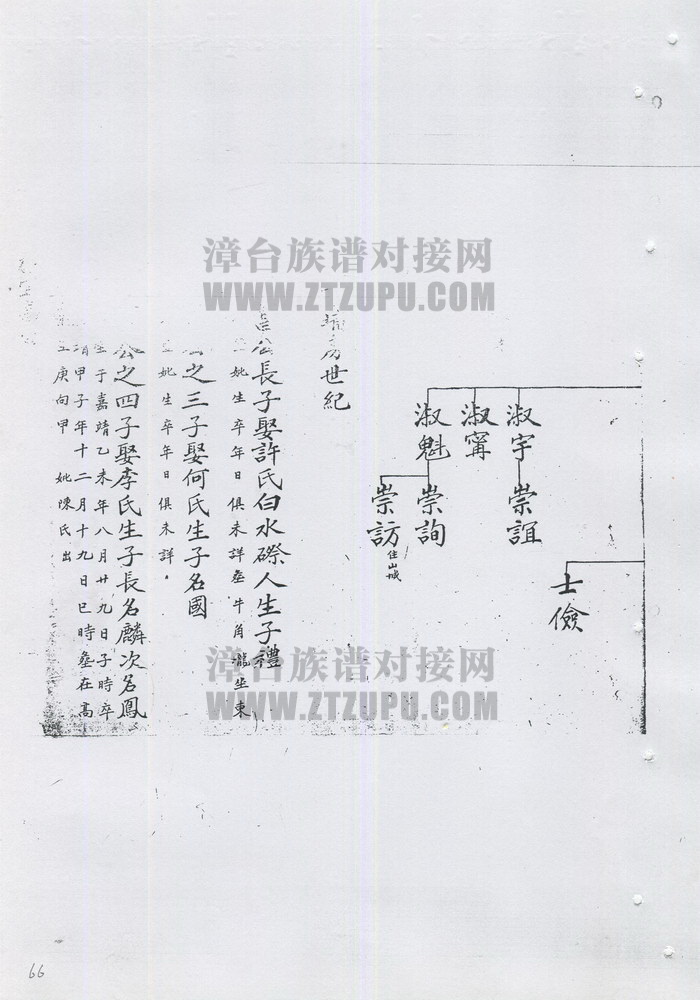 漳台族谱对接网
WWW.ZTZUPU.COM
士儉
淑宇
崇誼
淑甯
淑魁
崇詢
崇訪
住山城
房世紀
公長子娶許氏白水磜人生子禮
妣生卒年日俱未詳塟牛角瀧坐東
之三子娶何氏生子名國
妣生卒年日俱未詳
公之四子娶李氏生子長名麟次名鳳
生于嘉靖乙未年八月廿九日子時卒
甲子年十二月十九日巳時塟在高
庚向甲 妣陳氏出
漳台族谱对接网
WWW.ZTZUPU.COM
66